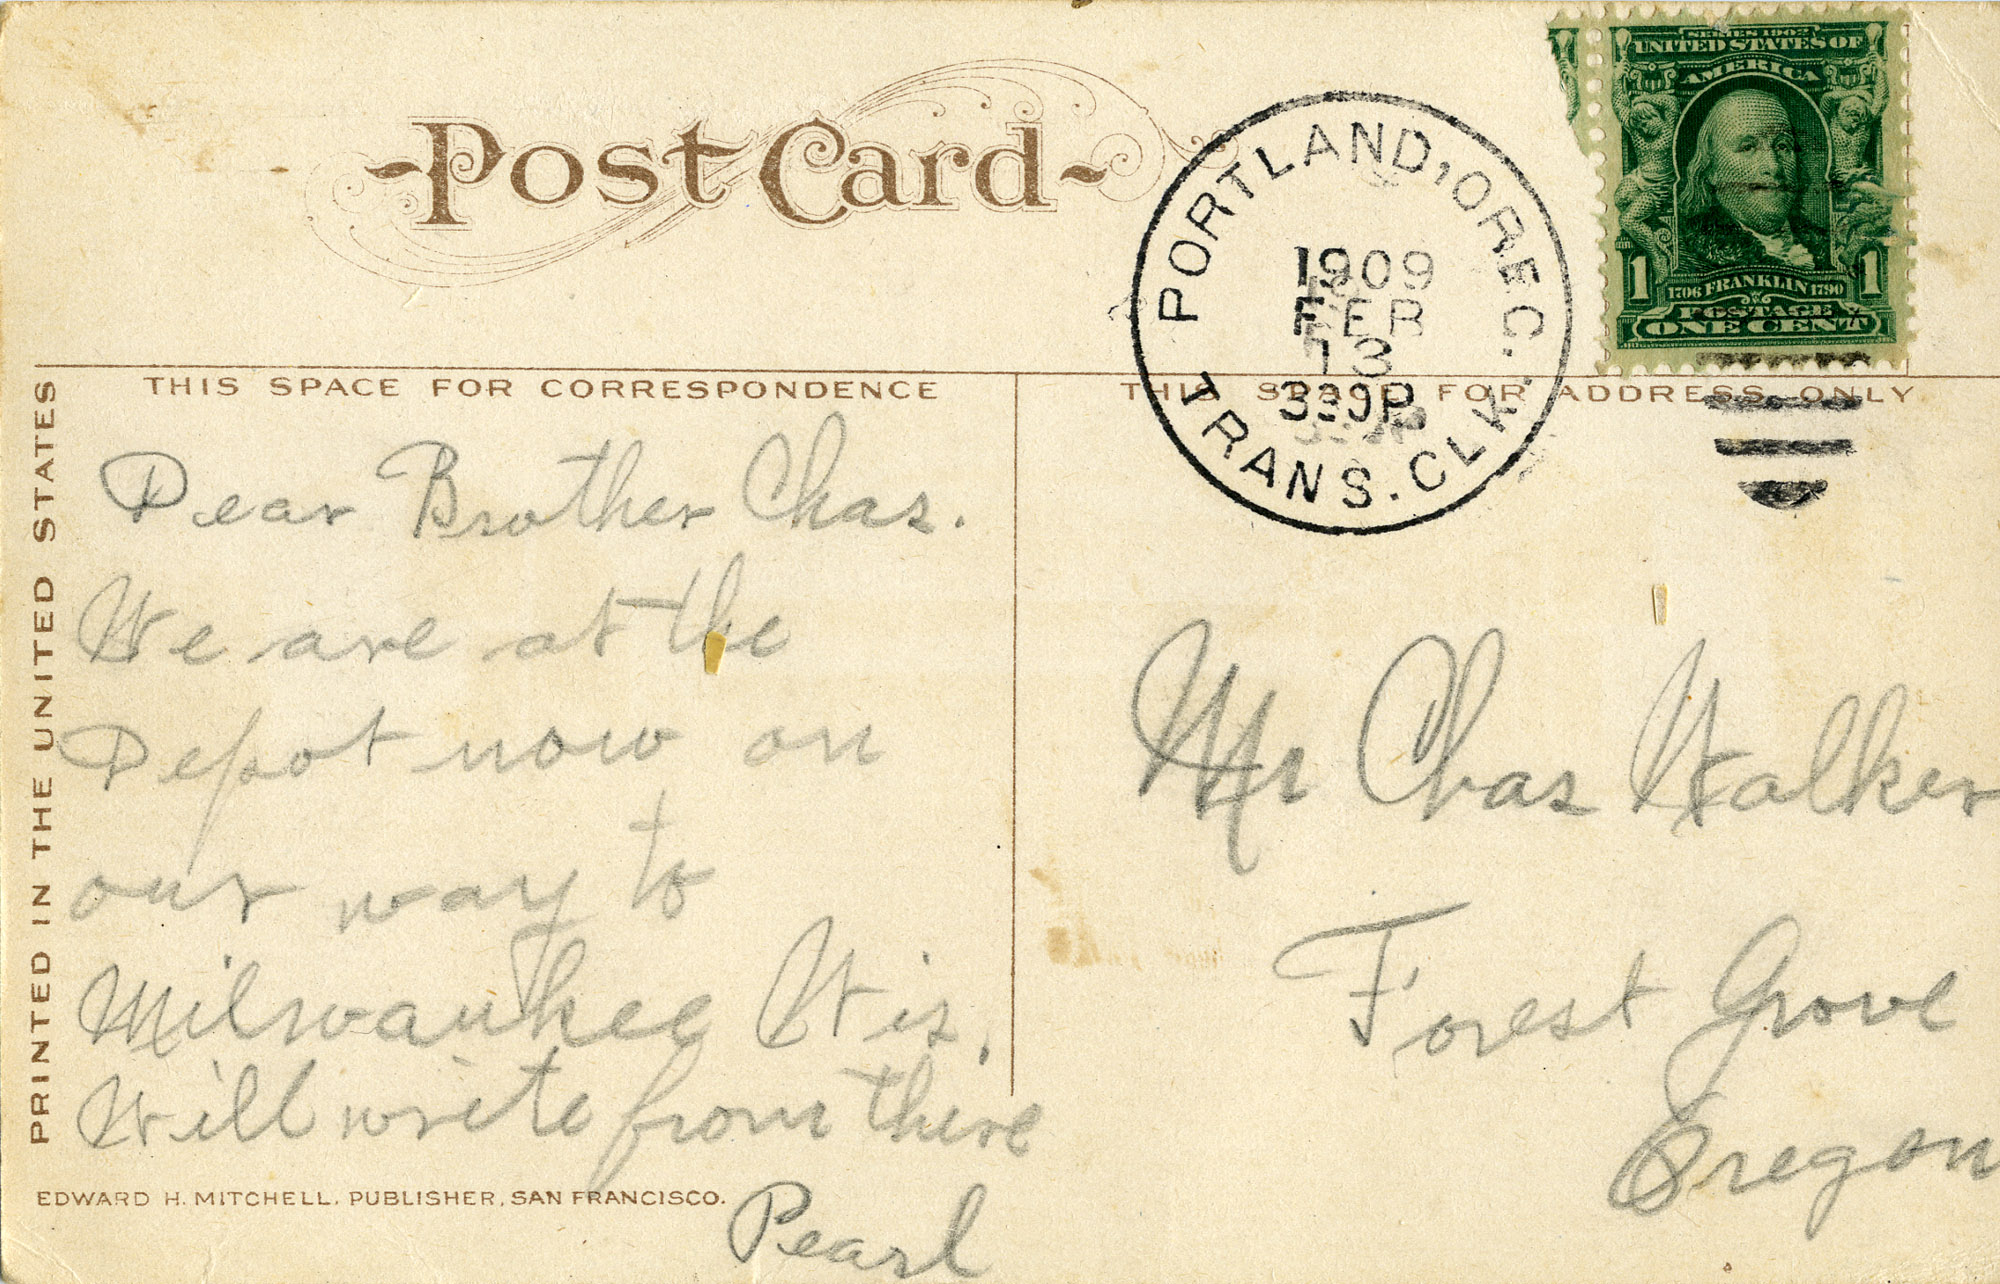 Post Card
SERIES 1902
UNITED STATES OF
AMERICA
1706 FRANKLIN 1790
1 1
POSTAGE
ONE CENT
PORTLAND, OREG.
1909
FEB
13
330P
TRANS. CLK.
THIS SPACE FOR CORRESPONDENCE
THIS SPACE FOR ADDRESS ONLY
PRINTED IN THE UNITED STATES
Dear Brother Chas.
We are at the
Depot now on
our way to
Milwaukee Wis,
Will write from there
Pearl
Mr Chas Walker
Forest Grove
Oregon
EDWARD H. MITCHELL, PUBLISHER, SAN FRANCISCO.